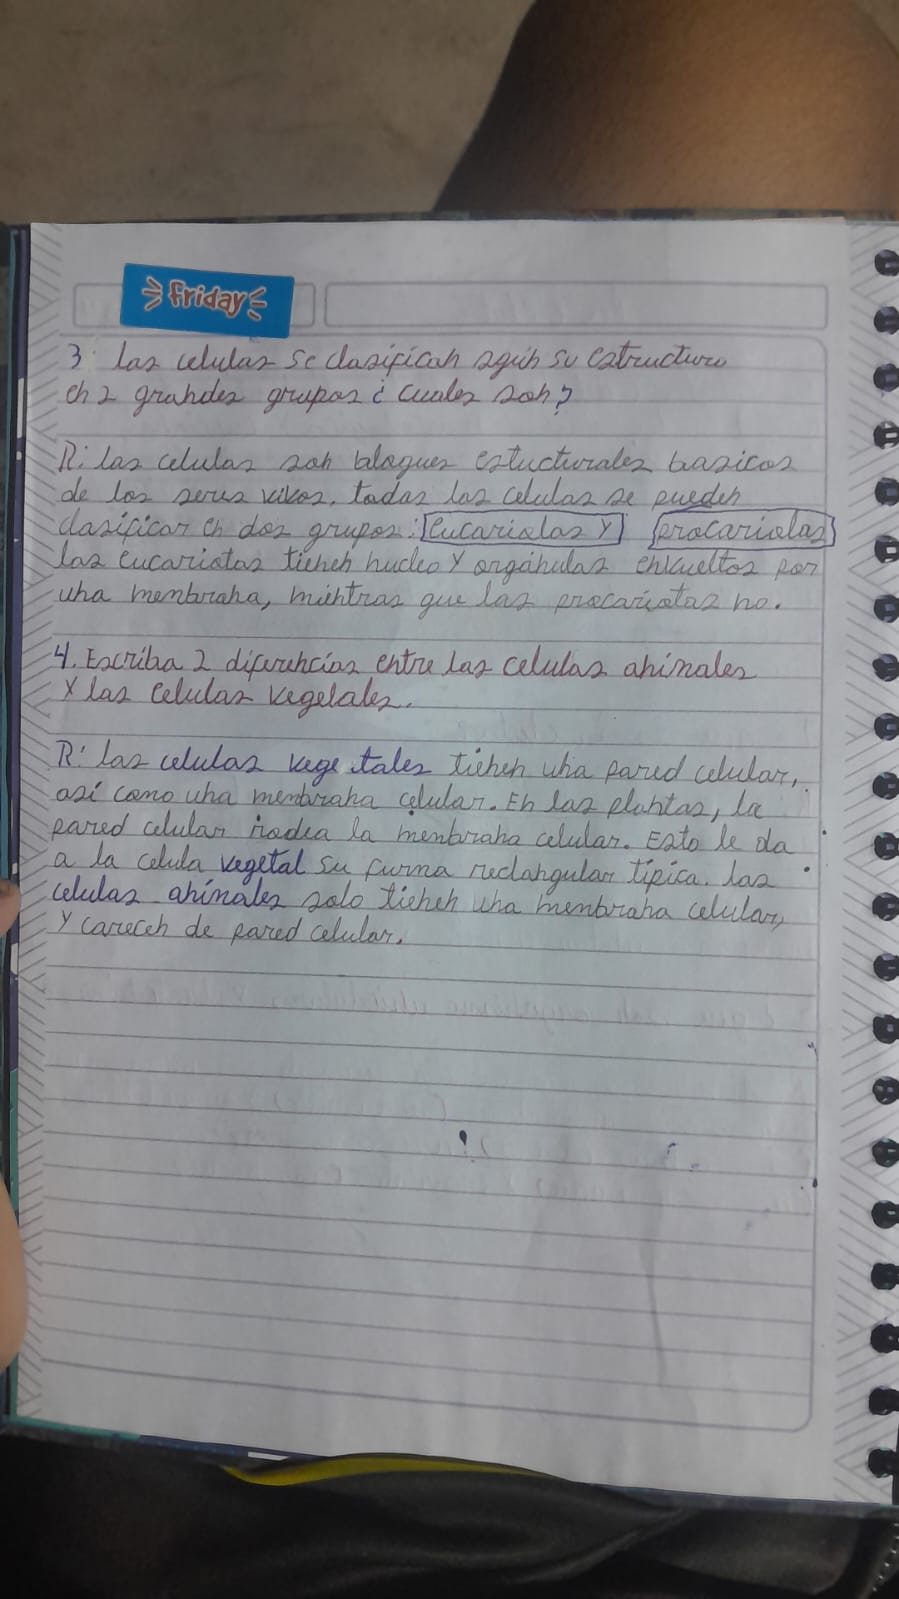 Friday
3. Las celulas se clasifican segun su estructura
en 2 grandes grupos ¿ cuales son?
R: las celulas son bloques estucturales basicos
de los seres vivos. todas las celulas se pueden
clasificar en dos grupos: Eucariolas Y procariolas
las eucariotas tienen nucleo Y orgánulas envueltos por
una membrana, mientras que las procariotas no.
4. Escriba 2 diferencias entre las celulas animales
Y las celulas vegelales.
R: las celulas vege tales tienen una pared celular,
así como una membrana celular. En las plantas, la
pared celular rodea la menbrana celular. Esto le da
a la celula vegetal su furma reclangular típica. las
celulas animales solo tienen una menbrana celular,
Y carecen de pared celular.